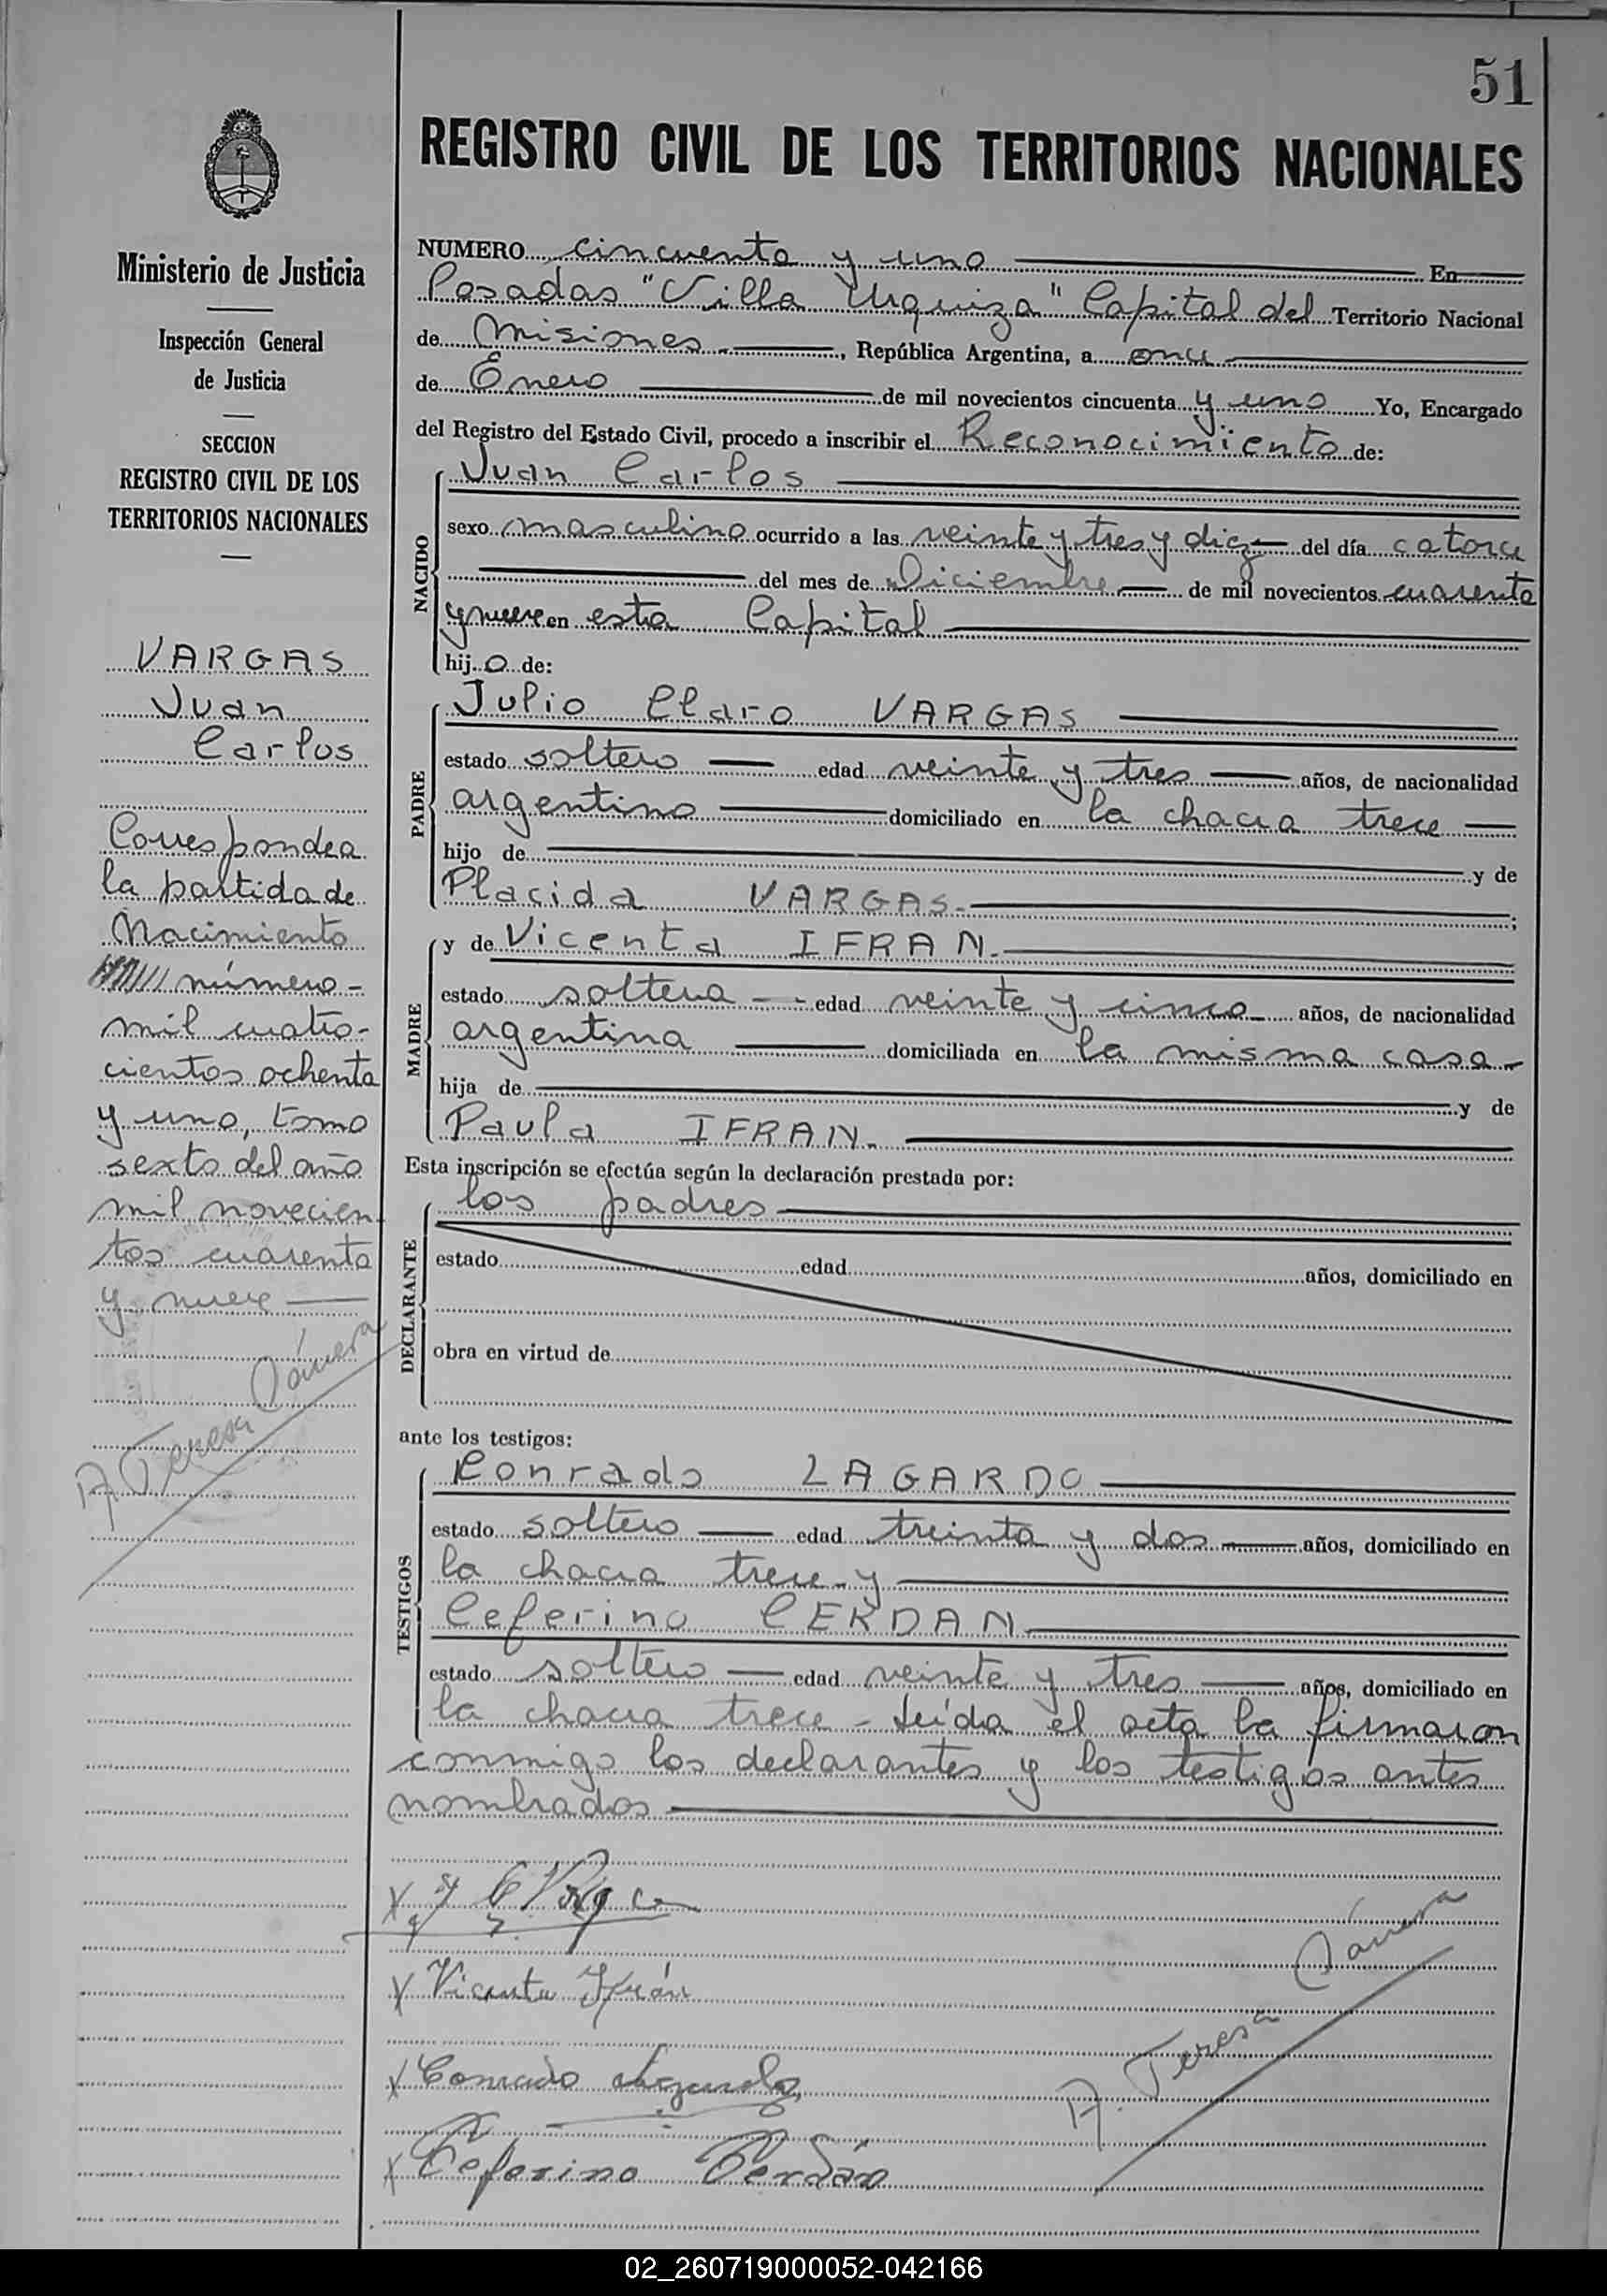 51
REGISTRO CIVIL DE LOS TERRITORIOS NACIONALES
Ministerio de Justicia
Inspección General
de Justicia
SECCION
REGISTRO CIVIL DE LOS
TERRITORIOS NACIONALES
VARGAS
Juan
Carlos
Corresponde a
la partida de
Nacimiento
número-
mil cuatro-
cientos ochenta
y uno, tomo
sexto del año
mil novecien-
tos cuarenta
y nueve
A. Teresa
NUMERO cincuenta y uno En
Posadas "Villa Urquiza" Capital del Territorio Nacional
de Misiones , República Argentina, a once
de Enero de mil novecientos cincuenta y uno Yo, Encargado
del Registro del Estado Civil, procedo a inscribir el Reconocimiento de:
NACIDO
Juan Carlos
sexo masculino ocurrido a las veinte y tres y diez del día catorce
del mes de Diciembre de mil novecientos cuarenta
y nueve en esta Capital
hijo de:
PADRE
Julio Claro VARGAS
estado soltero edad veinte y tres años, de nacionalidad
argentino domiciliado en la chacra trece
hijo de y de
Placida VARGAS.
MADRE
y de Vicenta IFRAN.
estado soltera edad veinte y cinco años, de nacionalidad
argentina domiciliada en la misma casa-
hija de y de
Paula IFRAN.
Esta inscripción se efectúa según la declaración prestada por:
DECLARANTE
los padres
estado edad años, domiciliado en
obra en virtud de
ante los testigos:
TESTIGOS
Conrado LAGARDO
estado soltero edad treinta y dos años, domiciliado en
la chacra trece-y
Ceferino CERDAN
estado soltero edad veinte y tres años, domiciliado en
la chacra trece - Leída el acta la firmaron
conmigo los declarantes y los testigos antes
nombrados
X Vicenta Ifrán
X Conrado
X Ceferino Cerdán
A. Teresa
02_260719000052-042166